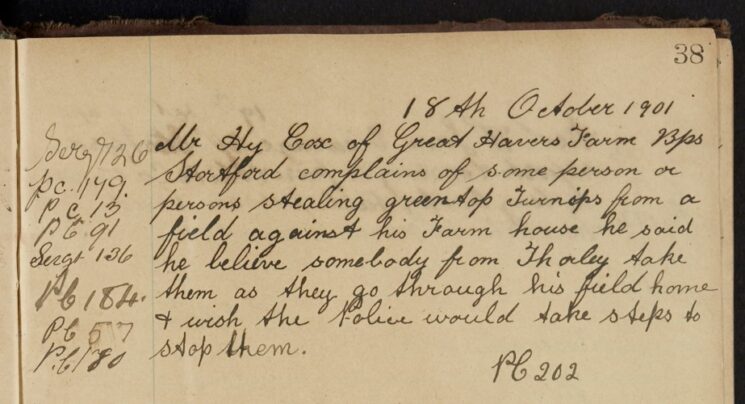 38
18th October 1901
Sergt 126
Mr Hy Cox of Great Havers Farm Bps
Pc. 179.
Stortford complains of some person or
Pc 13
persons stealing greentop Turnips from a
Pc 91
field against his Farm house he said
Sergt 136
he believe somebody from Thorley take
Pc 184.
them as they go through his field home
Pc 57
& wish the Police would take steps to
Pc 180
stop them.
PC 202